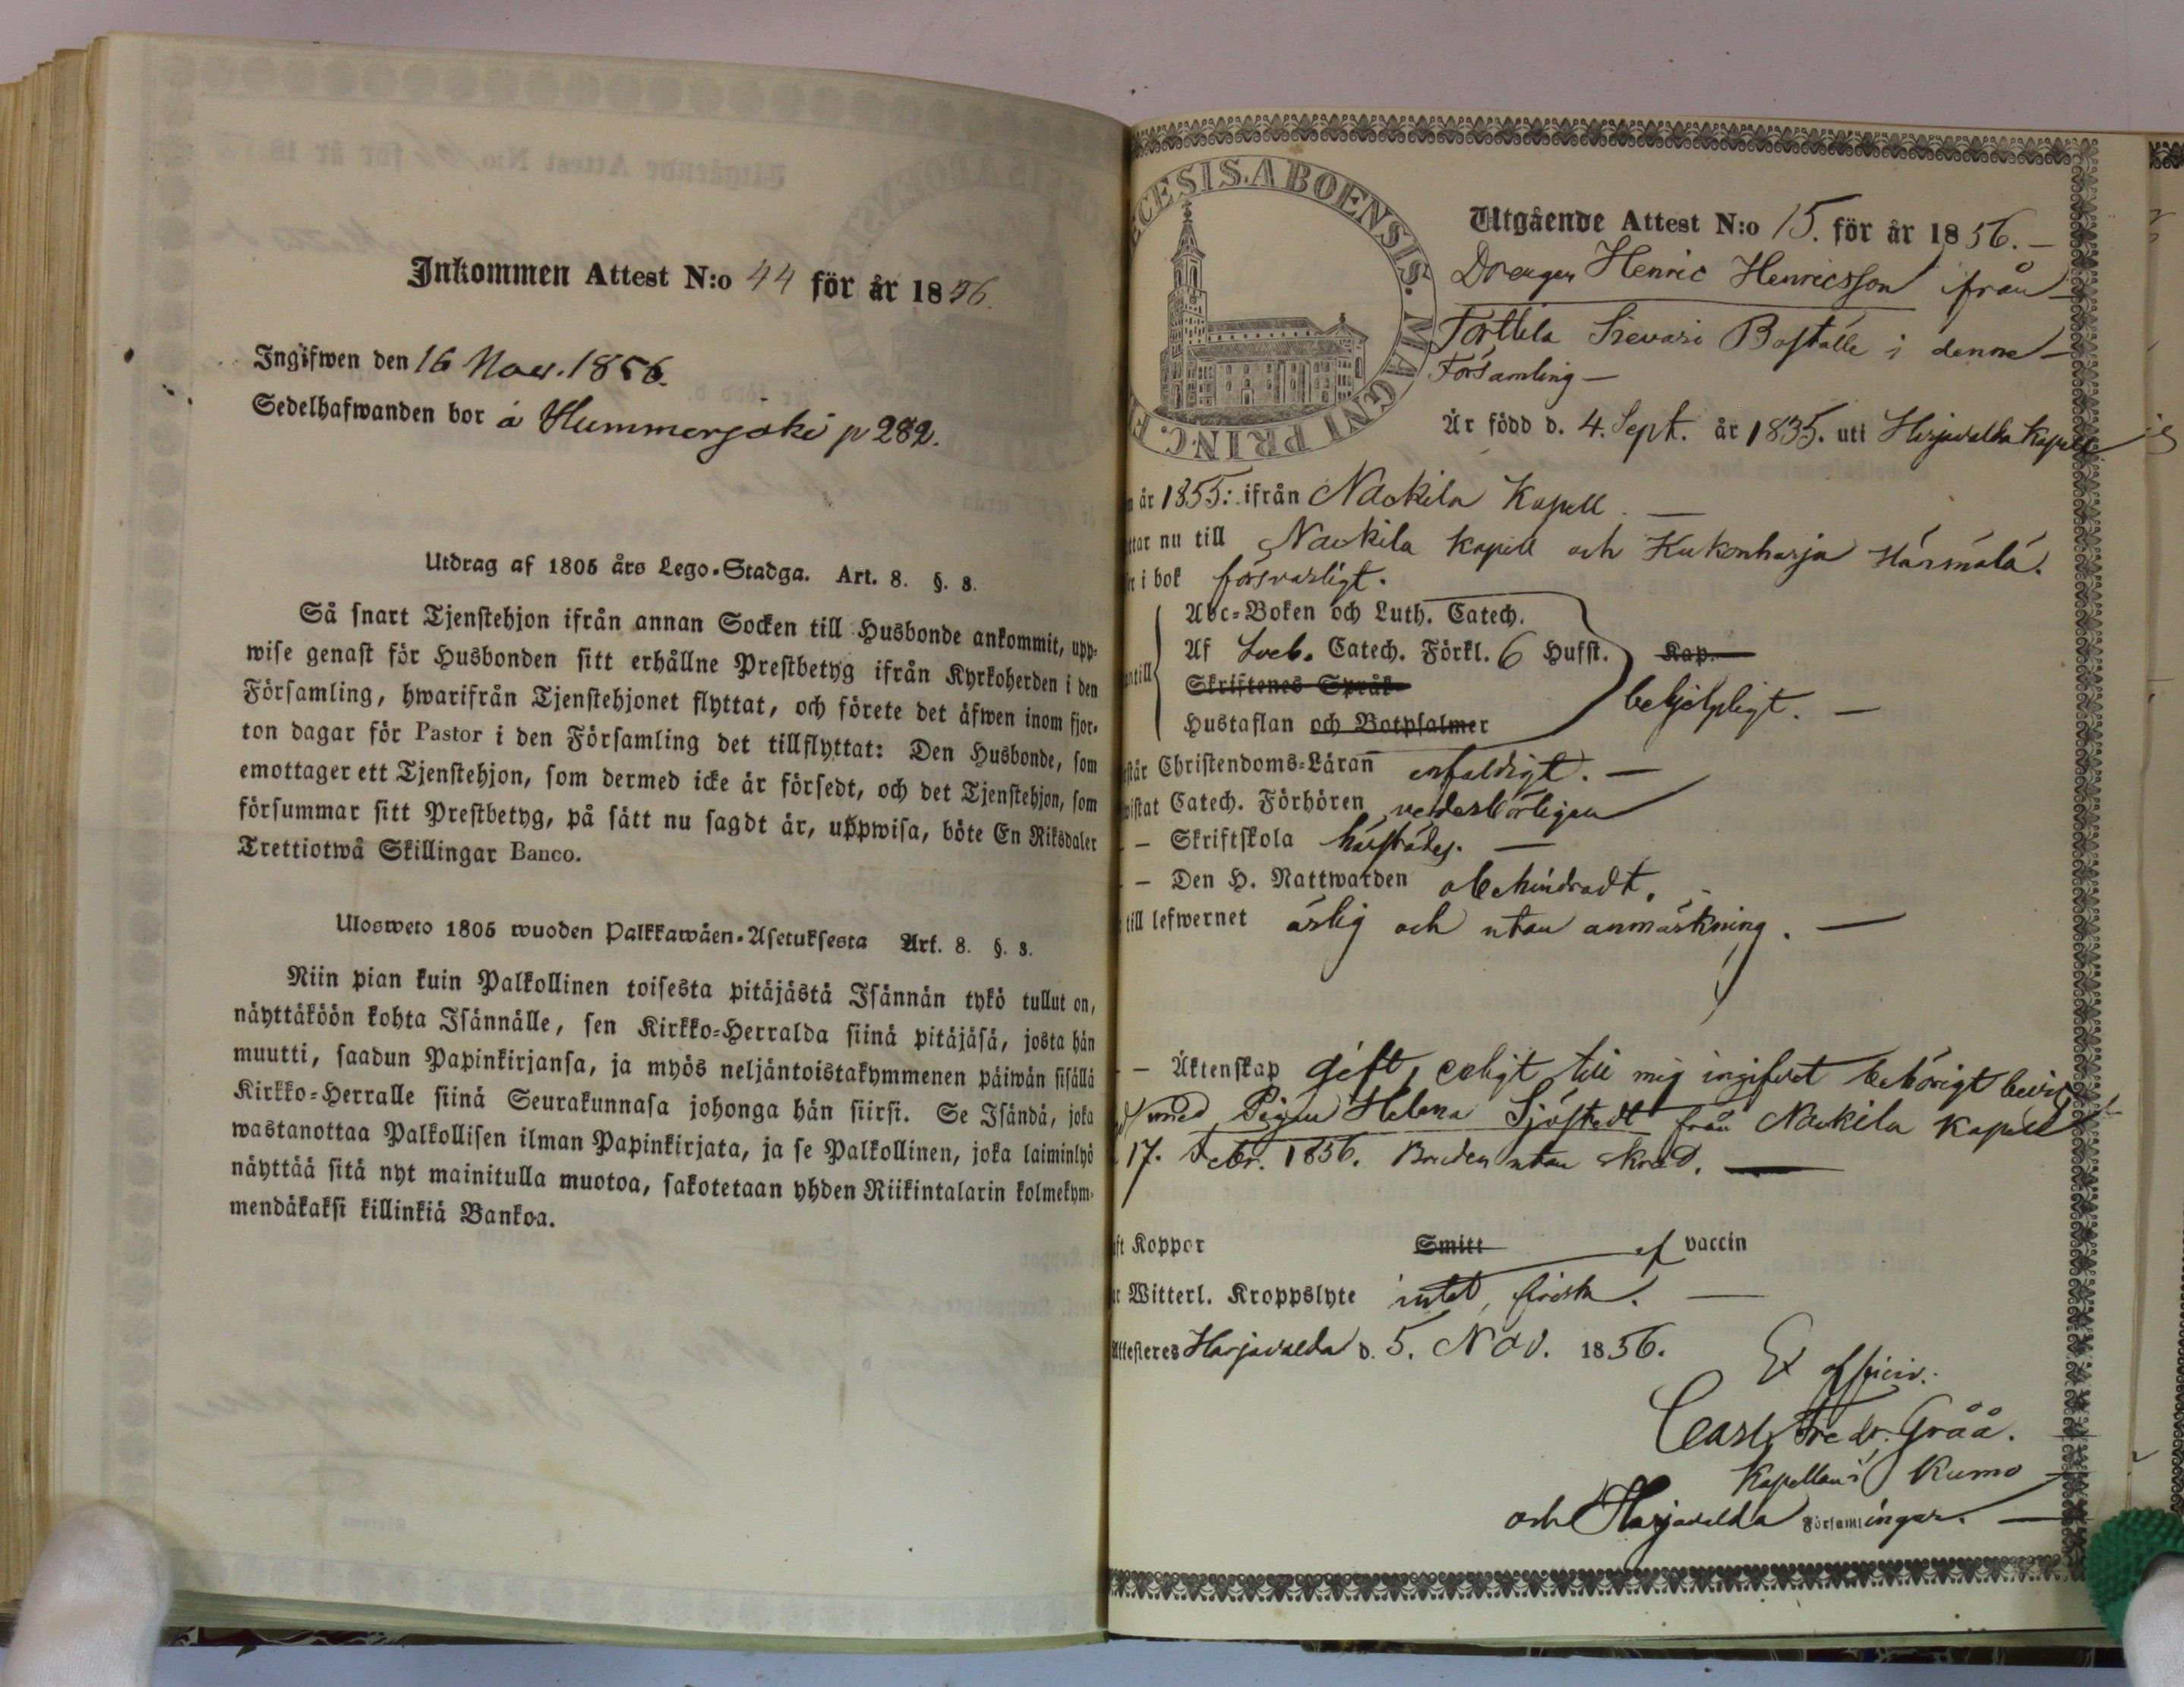 Inkommen Attest N:o 44 för år 1856.
Ingifwen den 16 Nov. 1856.
Sedelhafwanden bor å Hummerjoki p 282.
Utdrag af 1805 års Lego-Stadga. Art. 8. §. 8.
Så snart Tjenstehjon ifrån annan Socken till Husbonde ankommit, upp-
wise genast för Husbonden sitt erhållne Prestbetyg ifrån Kyrkoherden i den
Församling, hwarifrån Tjenstehjonet flyttat, och förete det äfwen inom fjor-
ton dagar för Pastor i den Församling det tillflyttat: Den Husbonde, som
emottager ett Tjenstehjon, som dermed icke är försedt, och det Tjenstehjon, som
försummar sitt Prestbetyg, på sätt nu sagdt är, uppwisa, böte En Riksdaler
Trettiotwå Skillingar Banco.
Ulosweto 1805 wuoden Palkkawäen-Asetuksesta Art. 8. §. 8.
Niin pian kuin Palkollinen toisesta pitäjästä Isännän tykö tullut on,
näyttäköön kohta Isännälle, sen Kirkko-Herralda siinä pitäjäsä, josta hän
muutti, saadun Papinkirjansa, ja myös neljäntoistakymmenen päiwän sisällä
Kirkko-Herralle siinä Seurakunnasa johonga hän siirsi. Se Isändä, joka
wastanottaa Palkollisen ilman Papinkirjata, ja se Palkollinen, joka laiminlyö
näyttää sitä nyt mainitulla muotoa, sakotetaan yhden Riikintalarin kolmekym-
mendäkaksi killinkiä Bankoa.
ECESIS. ABOENSIS. MAGNI PRINC. F
Utgående Attest N:o 15. för år 1856. —
Drengen Henric Henricsson ifrån
Torttila Sievari Boställe i denne
Församling —
Är född d. 4. Sept. år 1835. uti Harjavalda Kapell
n år 1855: ifrån Nackila Kapell. —
ttar nu till Nackila Kapell och Kukonharja Härmälä.
r i bok försvarligt.
Abc-Boken och Luth. Catech.
ntill Af Sveb. Catech. Förkl. 6 Hufst. Kap.
Skriftenes Språk
behjelpligt. —
Hustaflan och Botpsalmer
rstår Christendoms-Läran enfaldigt. —
wistat Catech. Förhören vederbörligen
— Skriftskola härstädes. —
— Den H. Nattwarden obehindradt.
till lefwernet ärlig och utan anmärkning. —
— Äktenskap gift, enligt till mig ingifvet behörigt bevis,
med Pigan Helena Sjöstedt från Nackila Kapell
17. 1856. Bruden utan
ft Koppor Smitt af vaccin
r Witterl. Kroppslyte intet, frisk. —
Attesteres Harjavalda d. 5. Nov. 1856.
Ex officio.
Carl Fredr. Gråå.
Kapellan i Kumo
och Harjavalda Församlingar. —